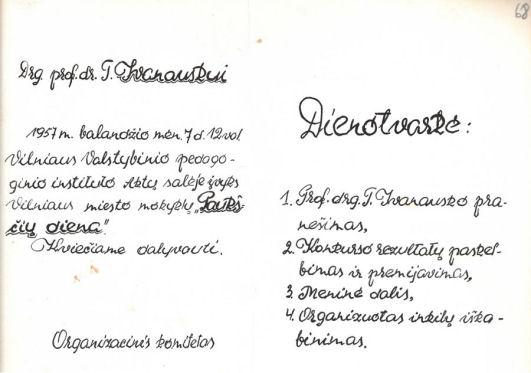 68
Drg. prof. dr. T. Ivanauskui
1957 m. balandžio mėn. 7 d. 12 val
Vilniaus Valstybinio pedago-
ginio instituto Aktų salėje įvyks
Vilniaus miesto mokyklų „Paukš-
čių diena".
Kviečiame dalyvauti.
Organizacinis komitetas
Dienotvarkė:
1. Prof. drg. T. Ivanausko pra-
nešimas,
2. Konkurso rezultatų paskel-
bimas ir premijavimas,
3. Meninė dalis,
4. Organizuotas inkilų iška-
binimas.